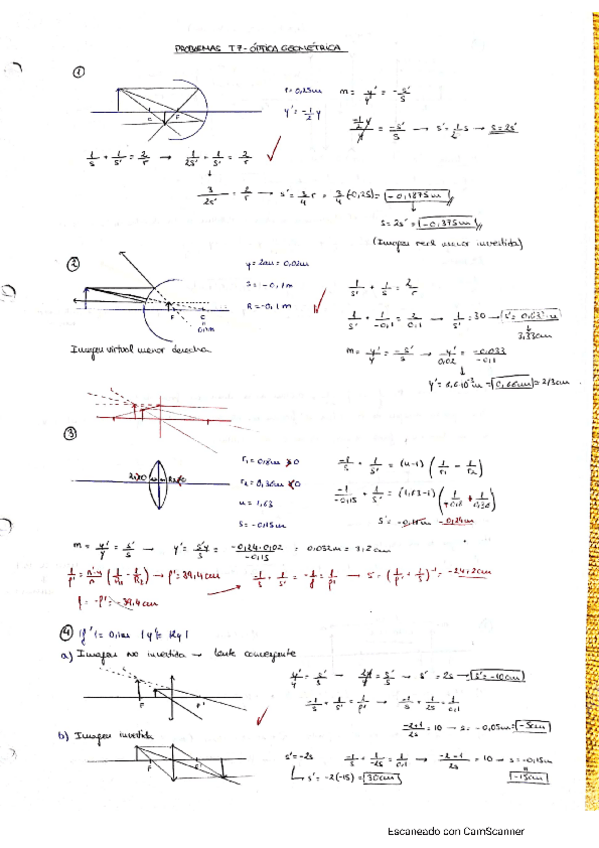 PROBLEMAS T7-ÓPTICA GEOMÉTRICA
①
r = 0,25m
y' = -1/2 y
m = y'/y = -s'/s
-1/2 y / y = -s'/s → s' = 1/2 s → s = 2s'
1/s + 1/s' = 2/r → 1/2s' + 1/s' = 2/r
3/2s' = 2/r → s' = 3/4 r = 3/4 (-0,25) = -0,1875m
s = 2s' = -0,375m
(Imagen real menor invertida)
②
y = 2cm = 0,02m
s = -0,1m
R = -0,1m
1/s' + 1/s = 2/r
1/s' + 1/-0,1 = 2/0,1 → 1/s' = 30 → s' = 0,033m
3,33cm
m = y'/y = -s'/s → y'/0,02 = -0,033/-0,1
Imagen virtual menor derecha
③
r₁ = 0,18m > 0
u = 1,63
s = -0,15m
-1/s + 1/s' = (u-1) (1/r₁ - 1/r₂)
s' = -0,24m
m = y'/y = s'/s → y' = s'y/s = -0,24·0,02/-0,15 = 0,032m = 3,2cm
→ f' = 39,4cm
f = -f' = -39,4cm
-24,2cm
④ |f'| = 0,1m
a) Imagen no invertida → lente convergente
y'/y = s'/s → 2y/y = s'/s → s' = 2s → s' = -10cm
-1/s + 1/s' = 1/f' → -1/s + 1/2s = 1/0,1
-2+1/2s = 10 → s = -0,05m = -5cm
b) Imagen invertida
s' = -2s
-1/s + 1/-2s = 1/0,1 → -2-1/2s = 10 → s = -0,15m
s' = -2(-15) = 30cm
-15cm
Escaneado con CamScanner